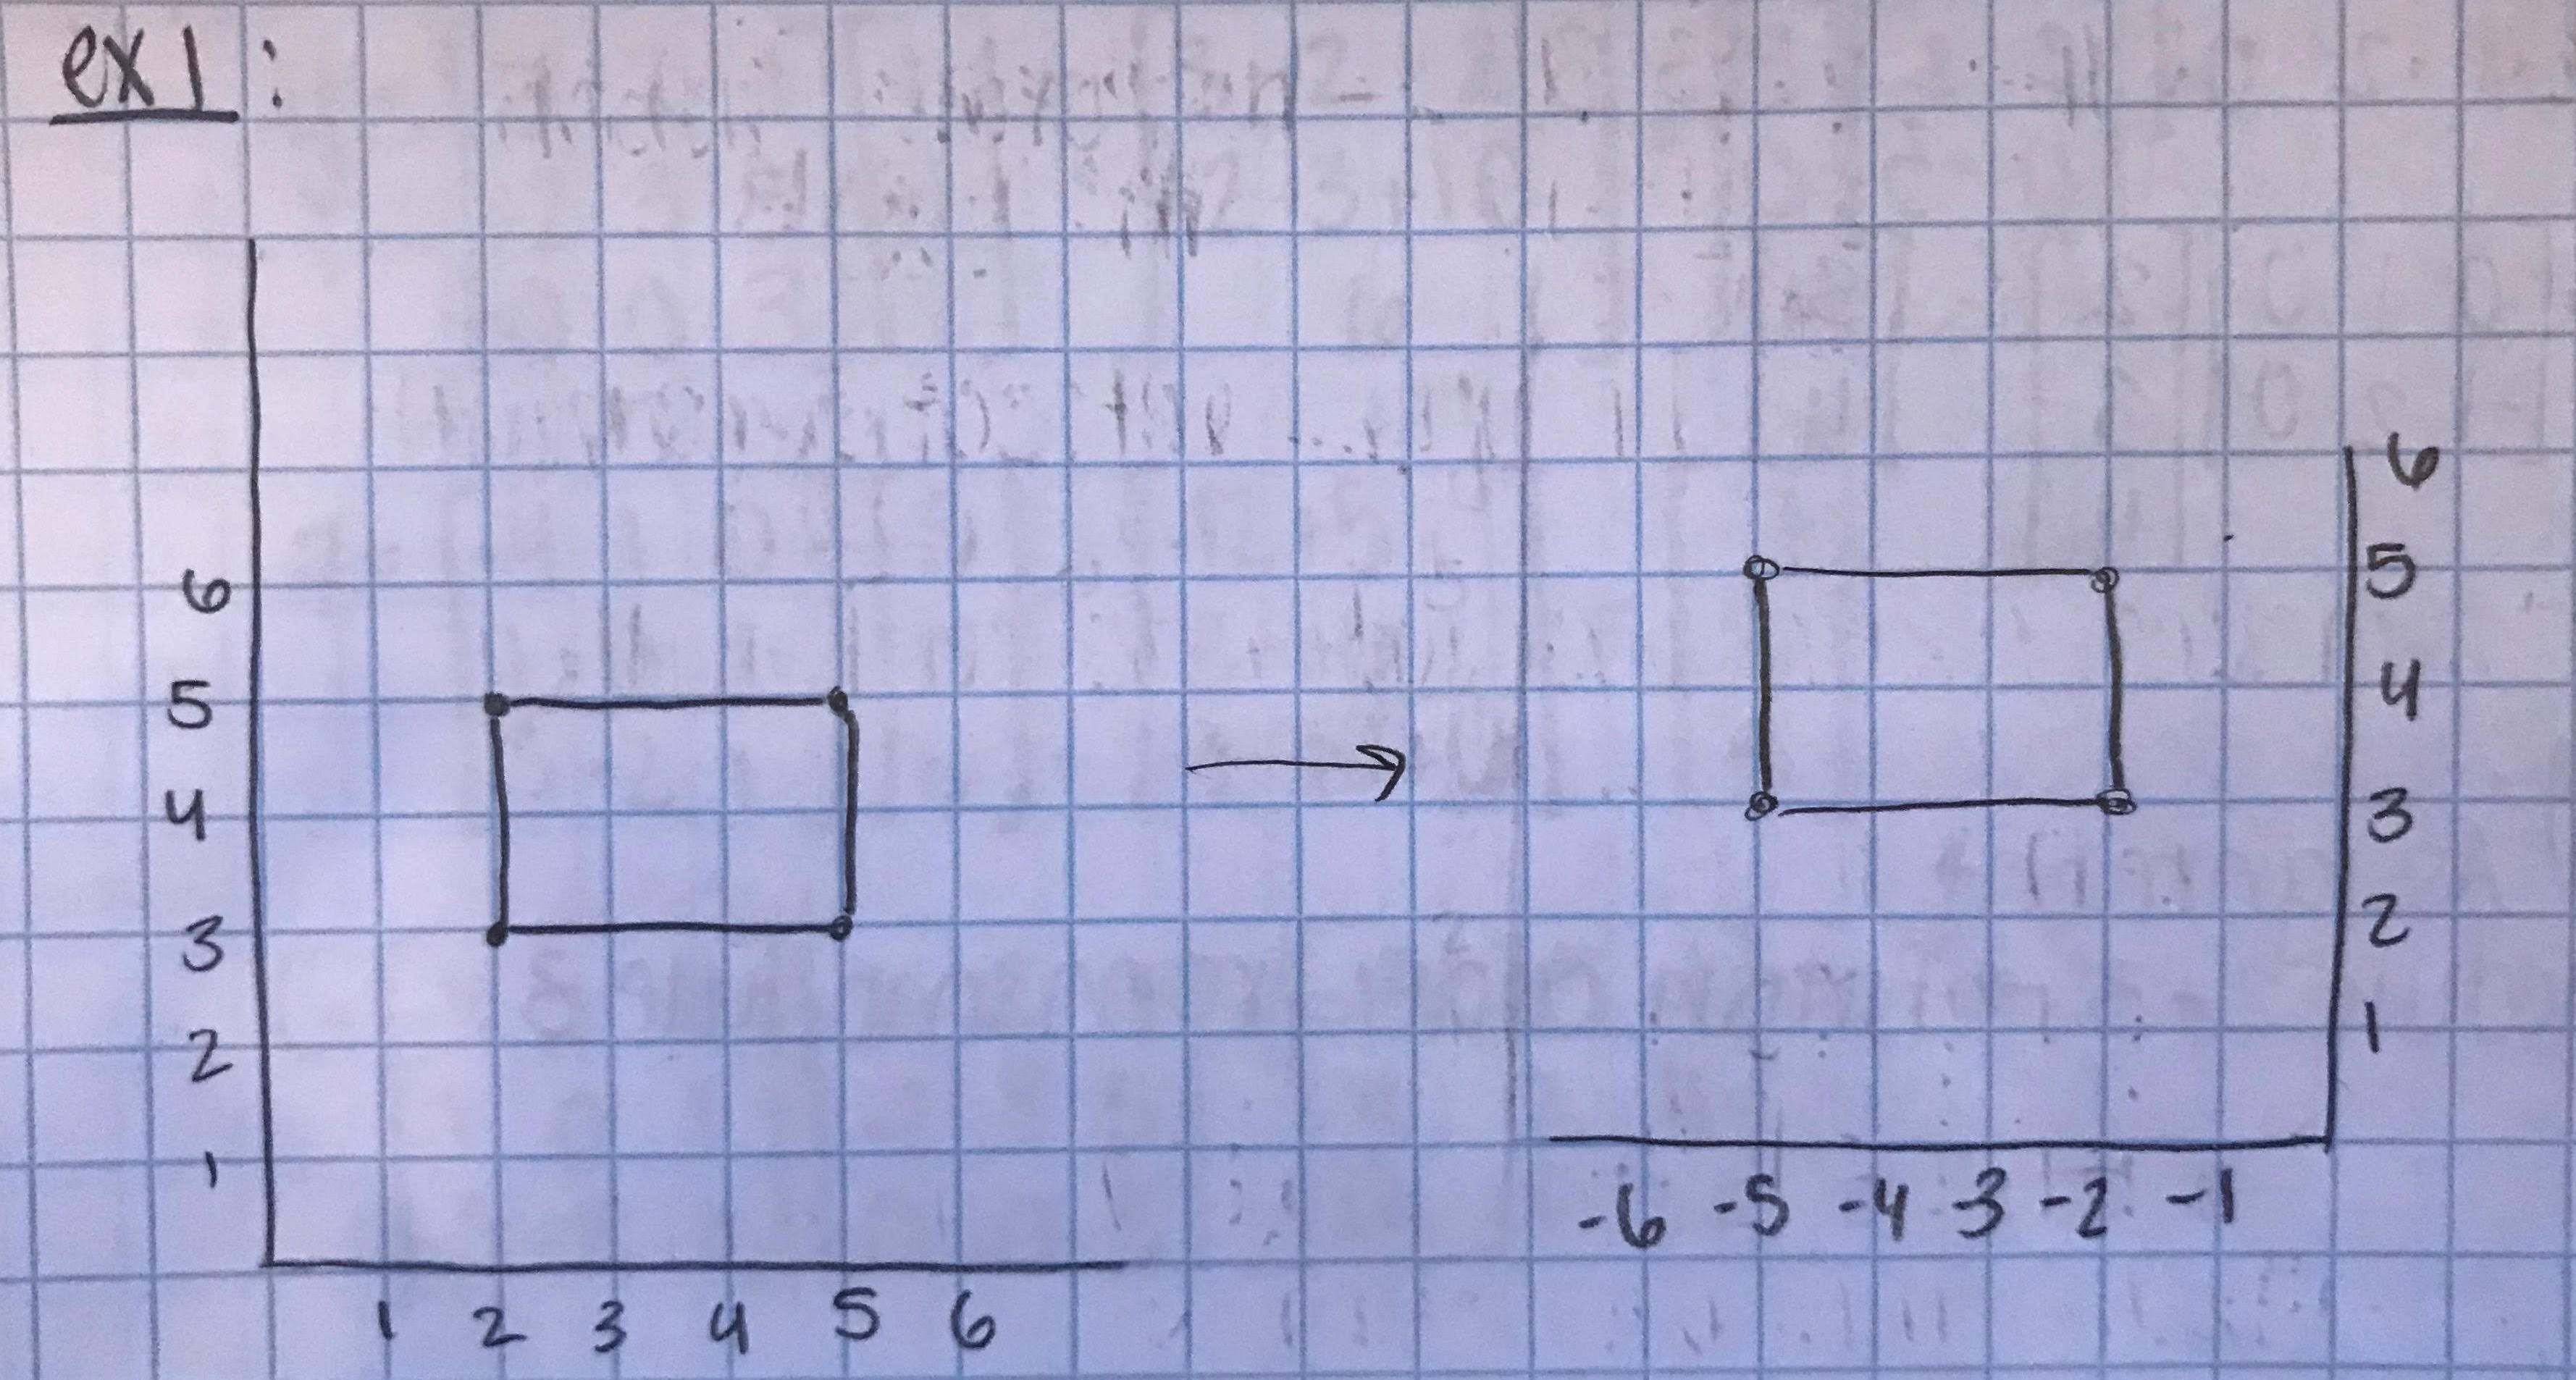 ex 1:
6
5
4
3
2
1
1 2 3 4 5 6
6
5
4
3
2
1
-6 -5 -4 -3 -2 -1